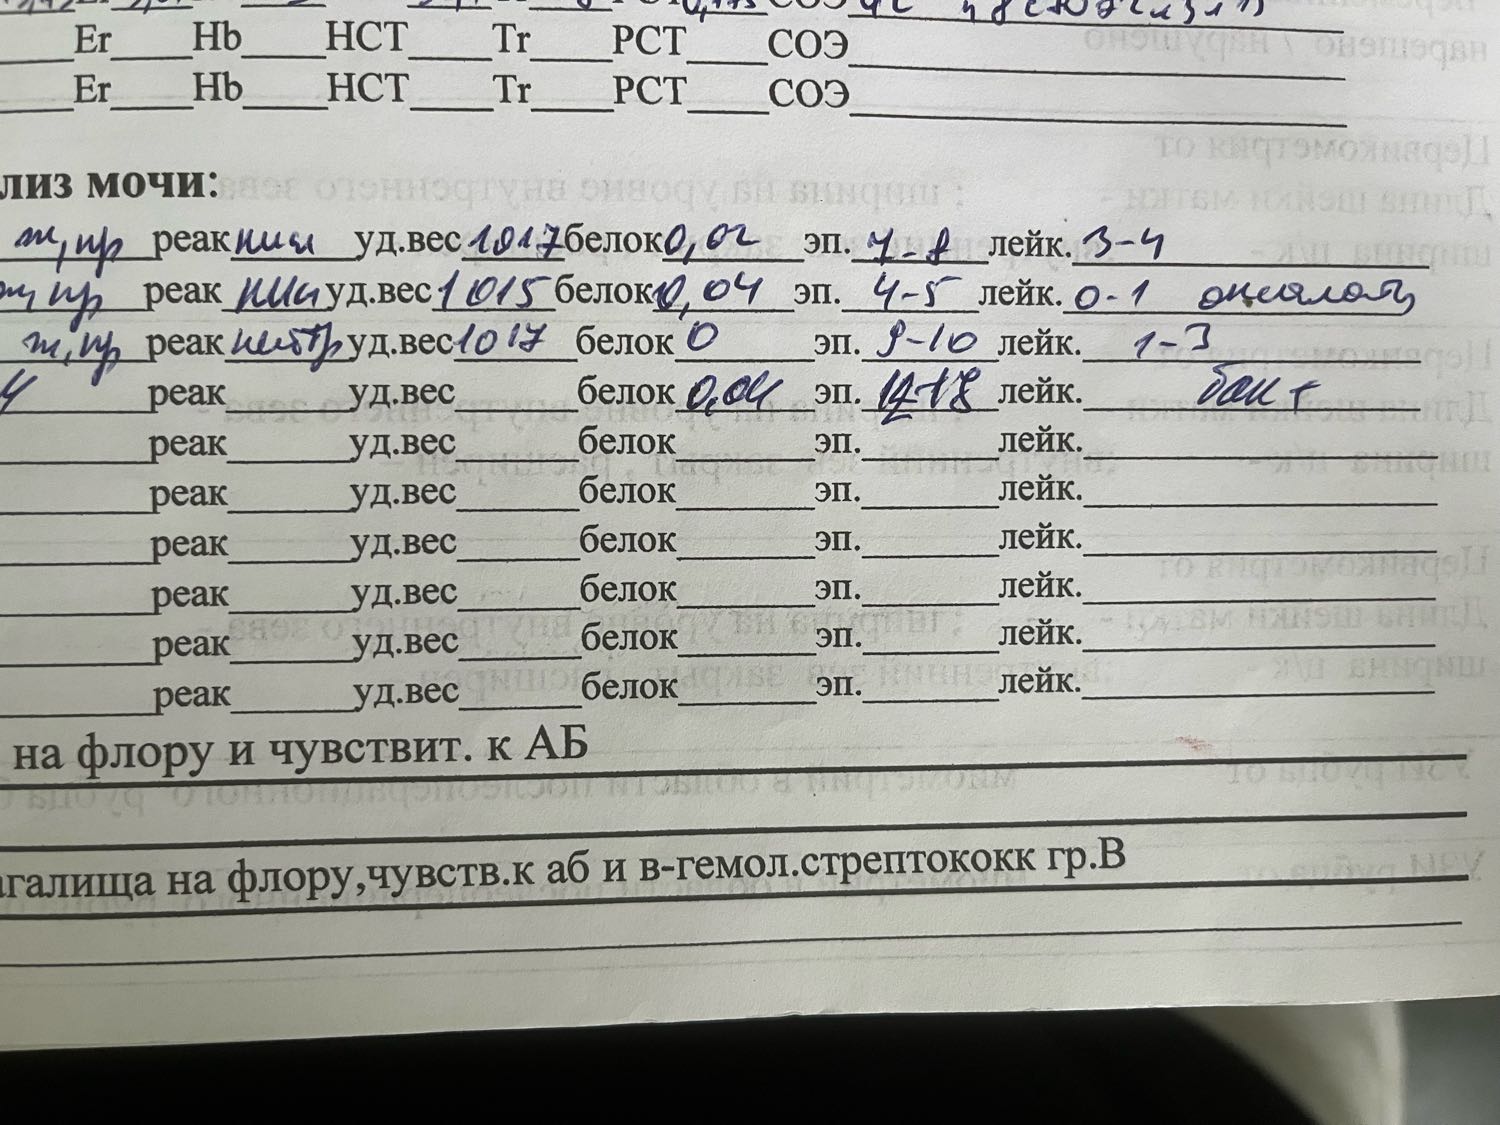 Er Hb HCT Tr PCT СОЭ
Er Hb HCT Tr PCT СОЭ
лиз мочи:
ж, пр реак кисл уд.вес 1017 белок 0,02 эп. 7-8 лейк. 3-4
пр реак кисл уд.вес 1015 белок 0,04 эп. 4-5 лейк. 0-1 оксалаты
ж, пр реак нейтр уд.вес 1017 белок 0 эп. 9-10 лейк. 1-3
реак уд.вес белок 0,04 эп. лейк. бак +
реак уд.вес белок эп. лейк.
реак уд.вес белок эп. лейк.
реак уд.вес белок эп. лейк.
реак уд.вес белок эп. лейк.
реак уд.вес белок эп. лейк.
реак уд.вес белок эп. лейк.
на флору и чувствит. к АБ
агалища на флору,чувств.к аб и в-гемол.стрептококк гр.В